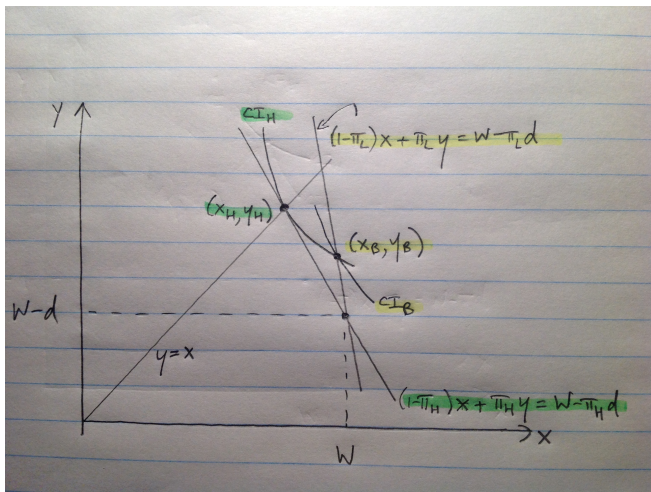 y
CI_H
(1-π_L)x + π_L y = W - π_L d
(x_H, y_H)
(x_B, y_B)
CI_B
W-d
y=x
(1-π_H)x + π_H y = W-π_H d
x
W